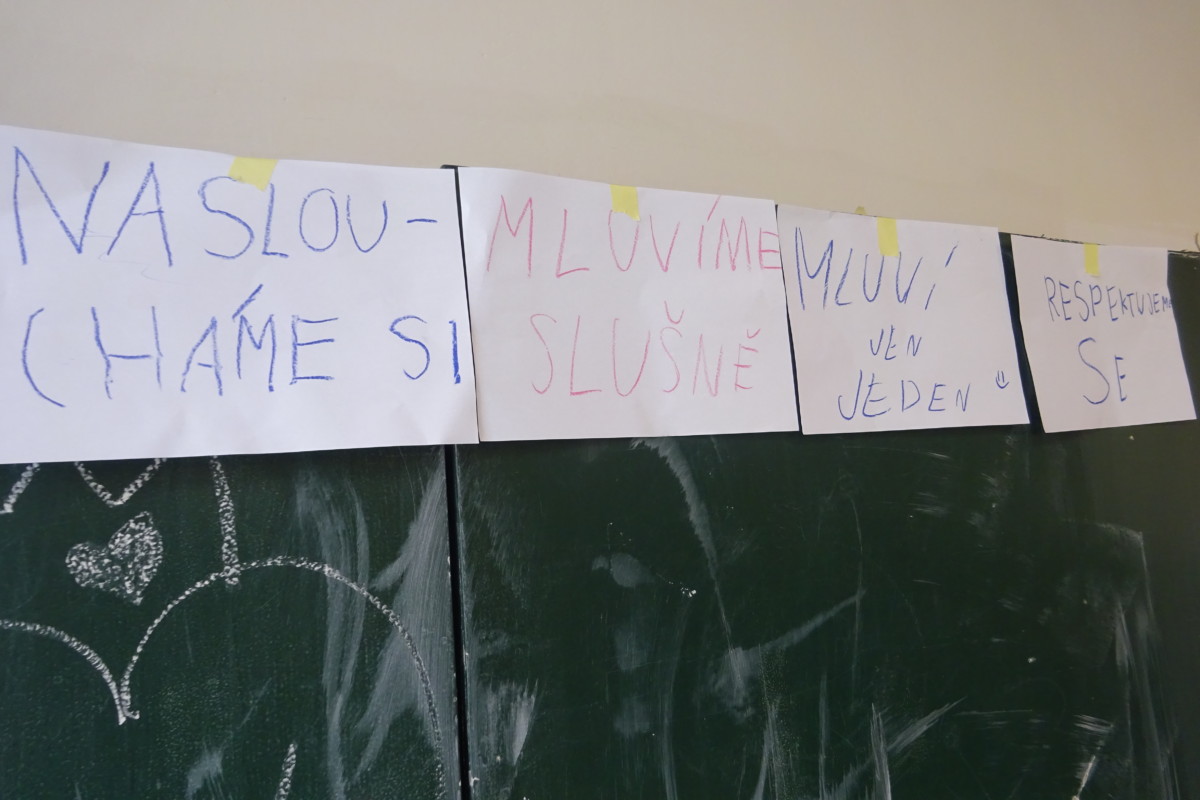 NASLOU-
CHÁME SI
MLUVÍME
SLUŠNĚ
MLUVÍ
JEN
JEDEN
RESPEKTUJEME
SE